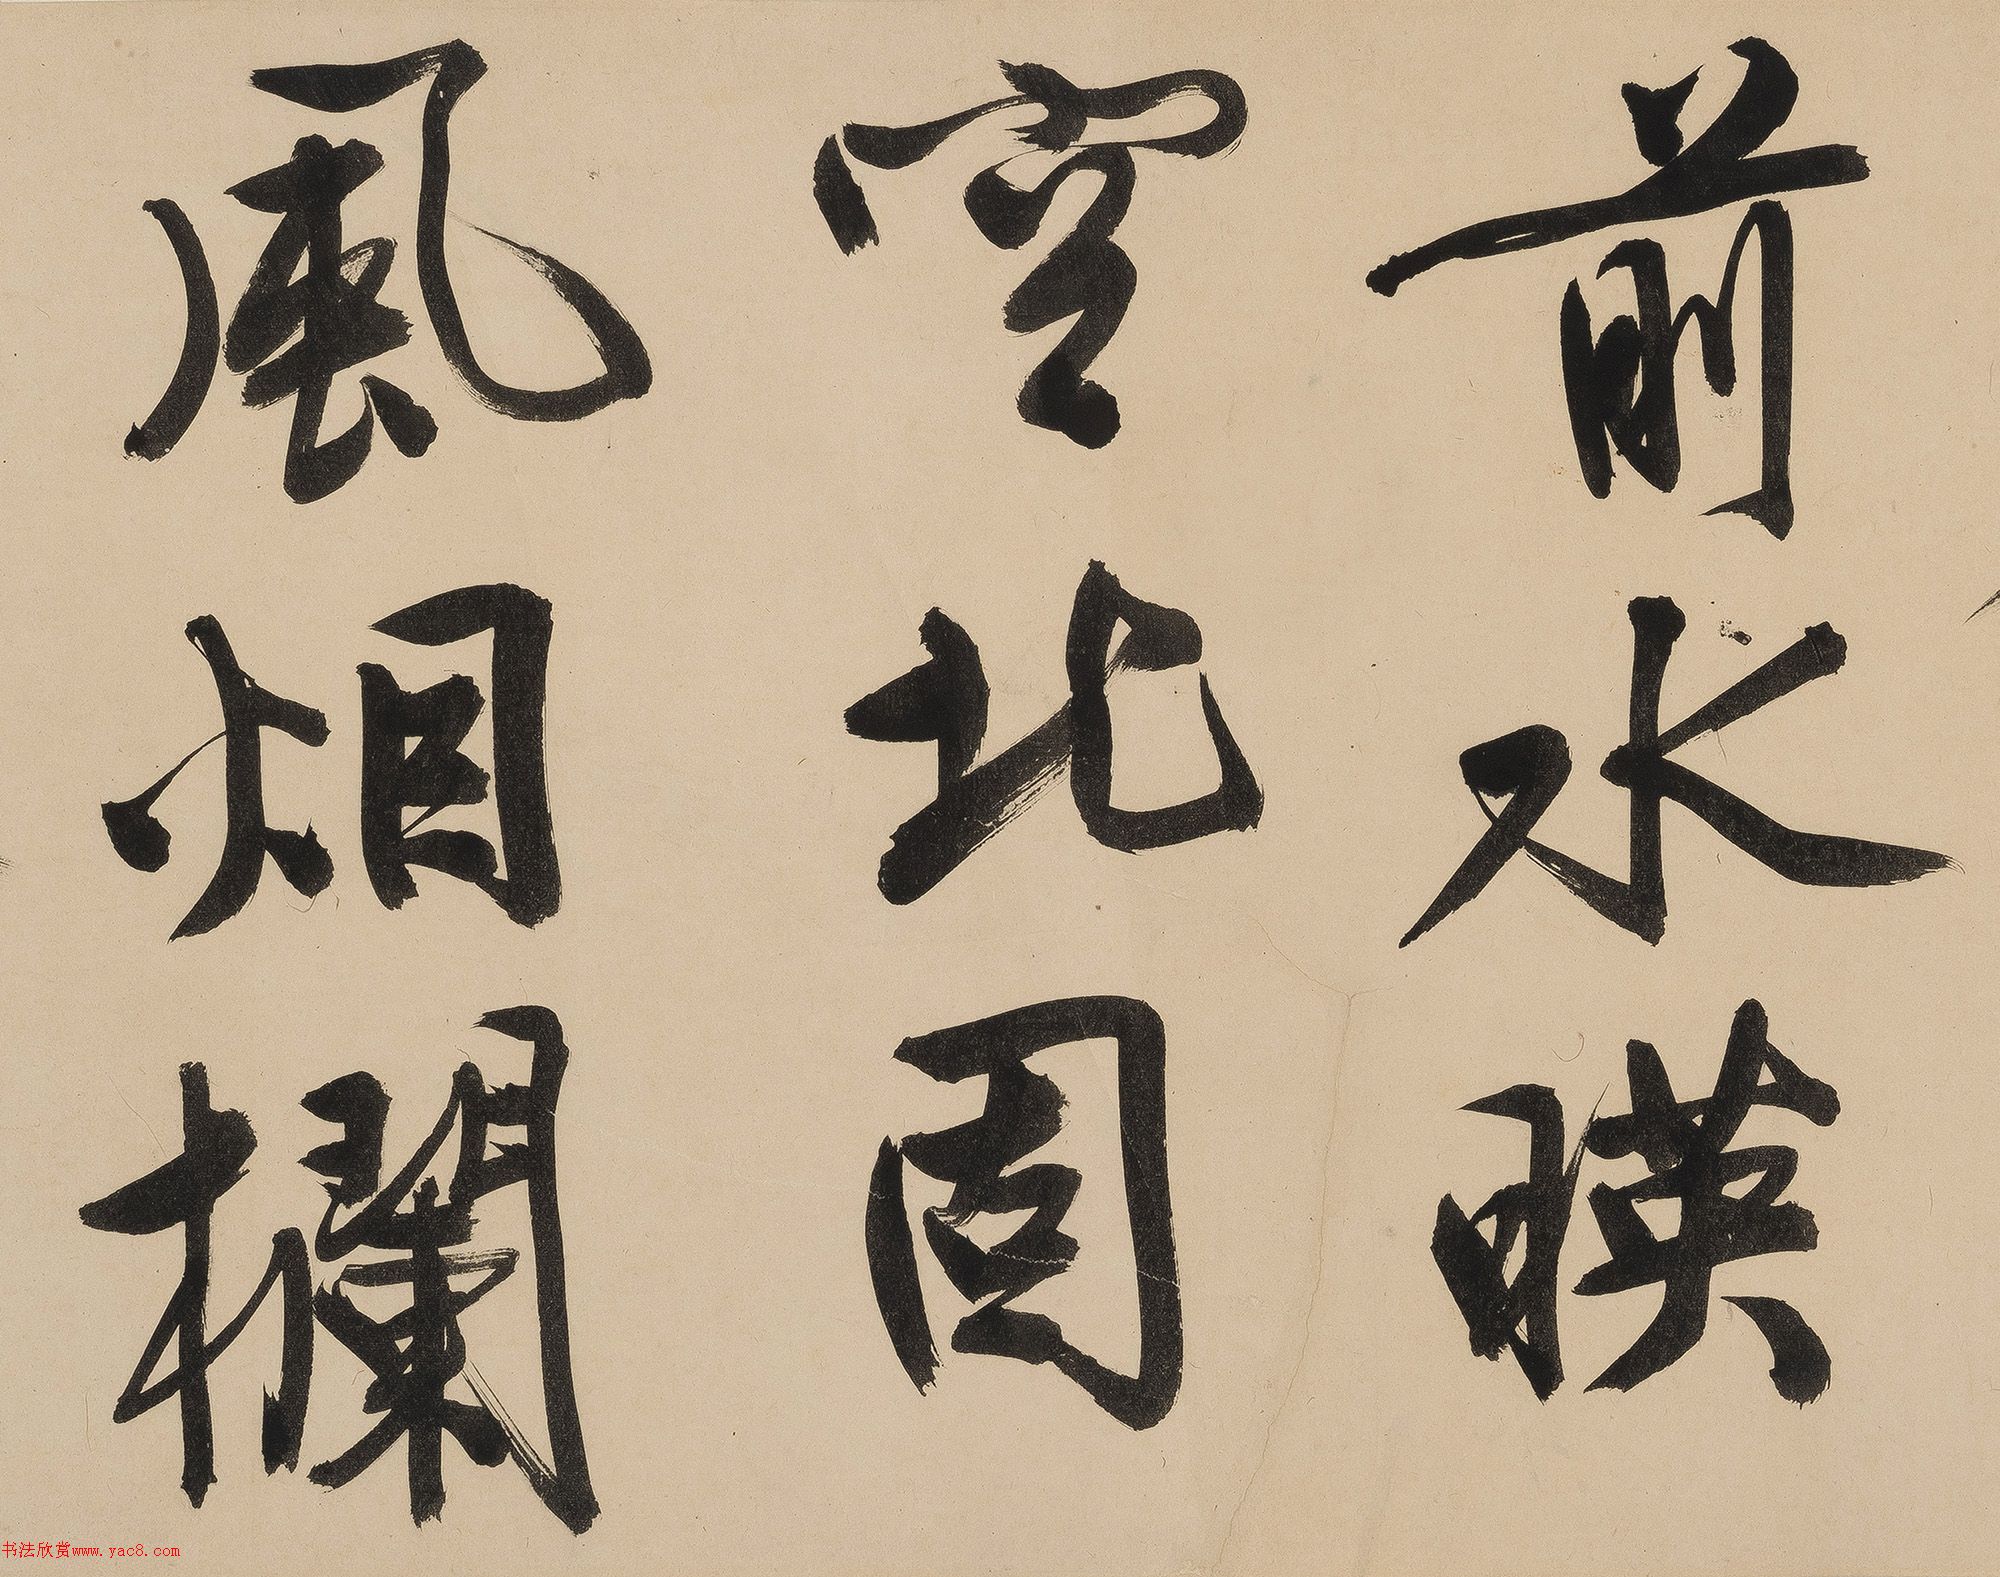 前水暎
空北固
風烟欄
书法欣赏www.yac8.com